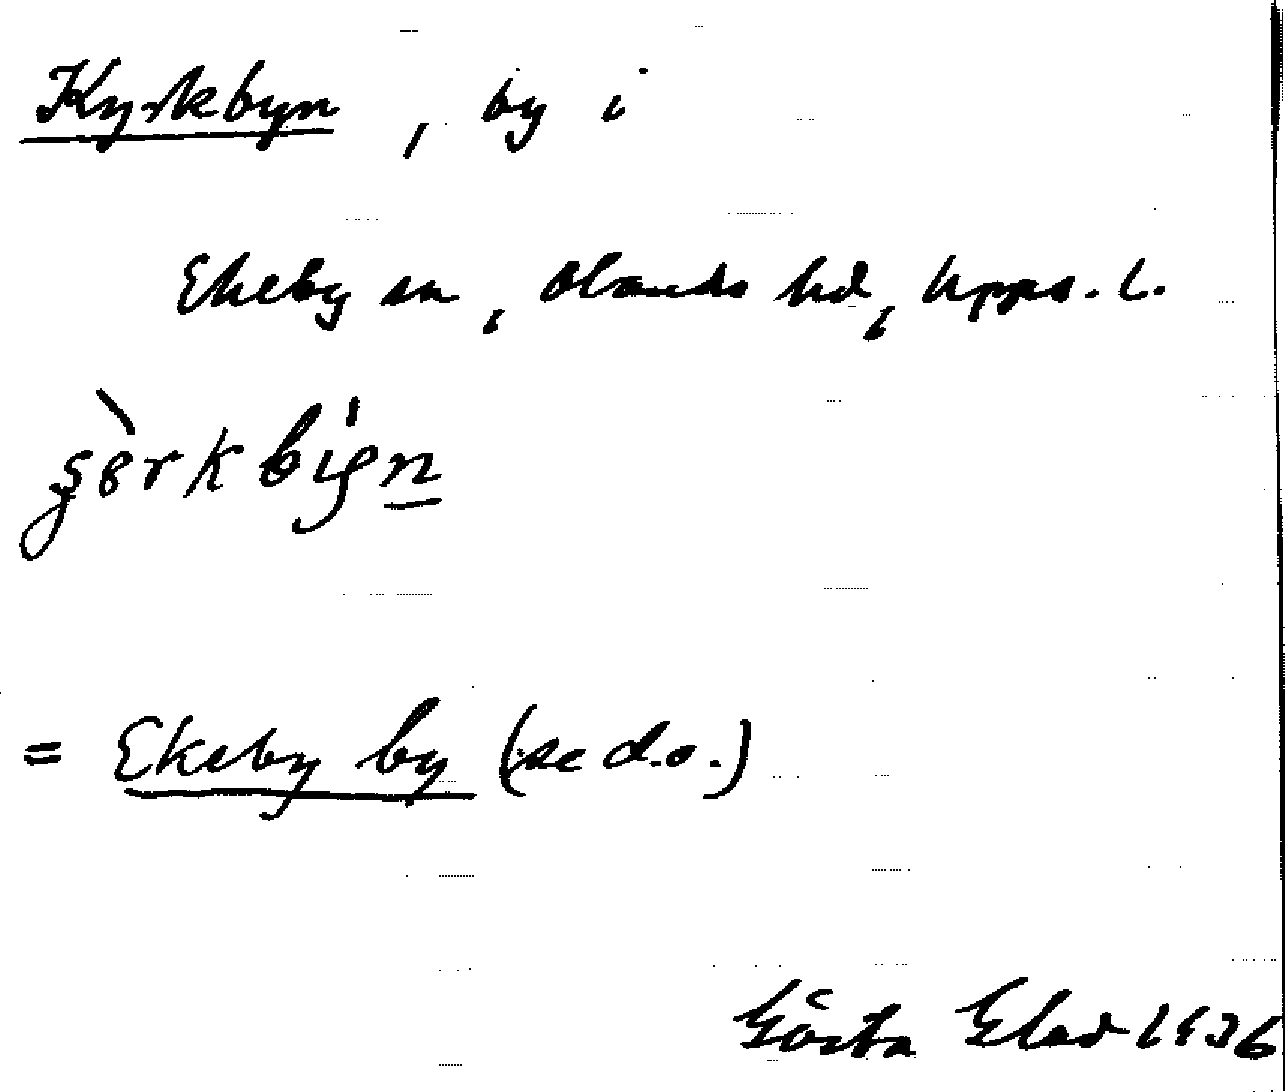 Kyrkbyn, by i
Ekeby sn, Olands hd, Upps. l.
= Ekeby by (se d.o.)
Gösta 1936